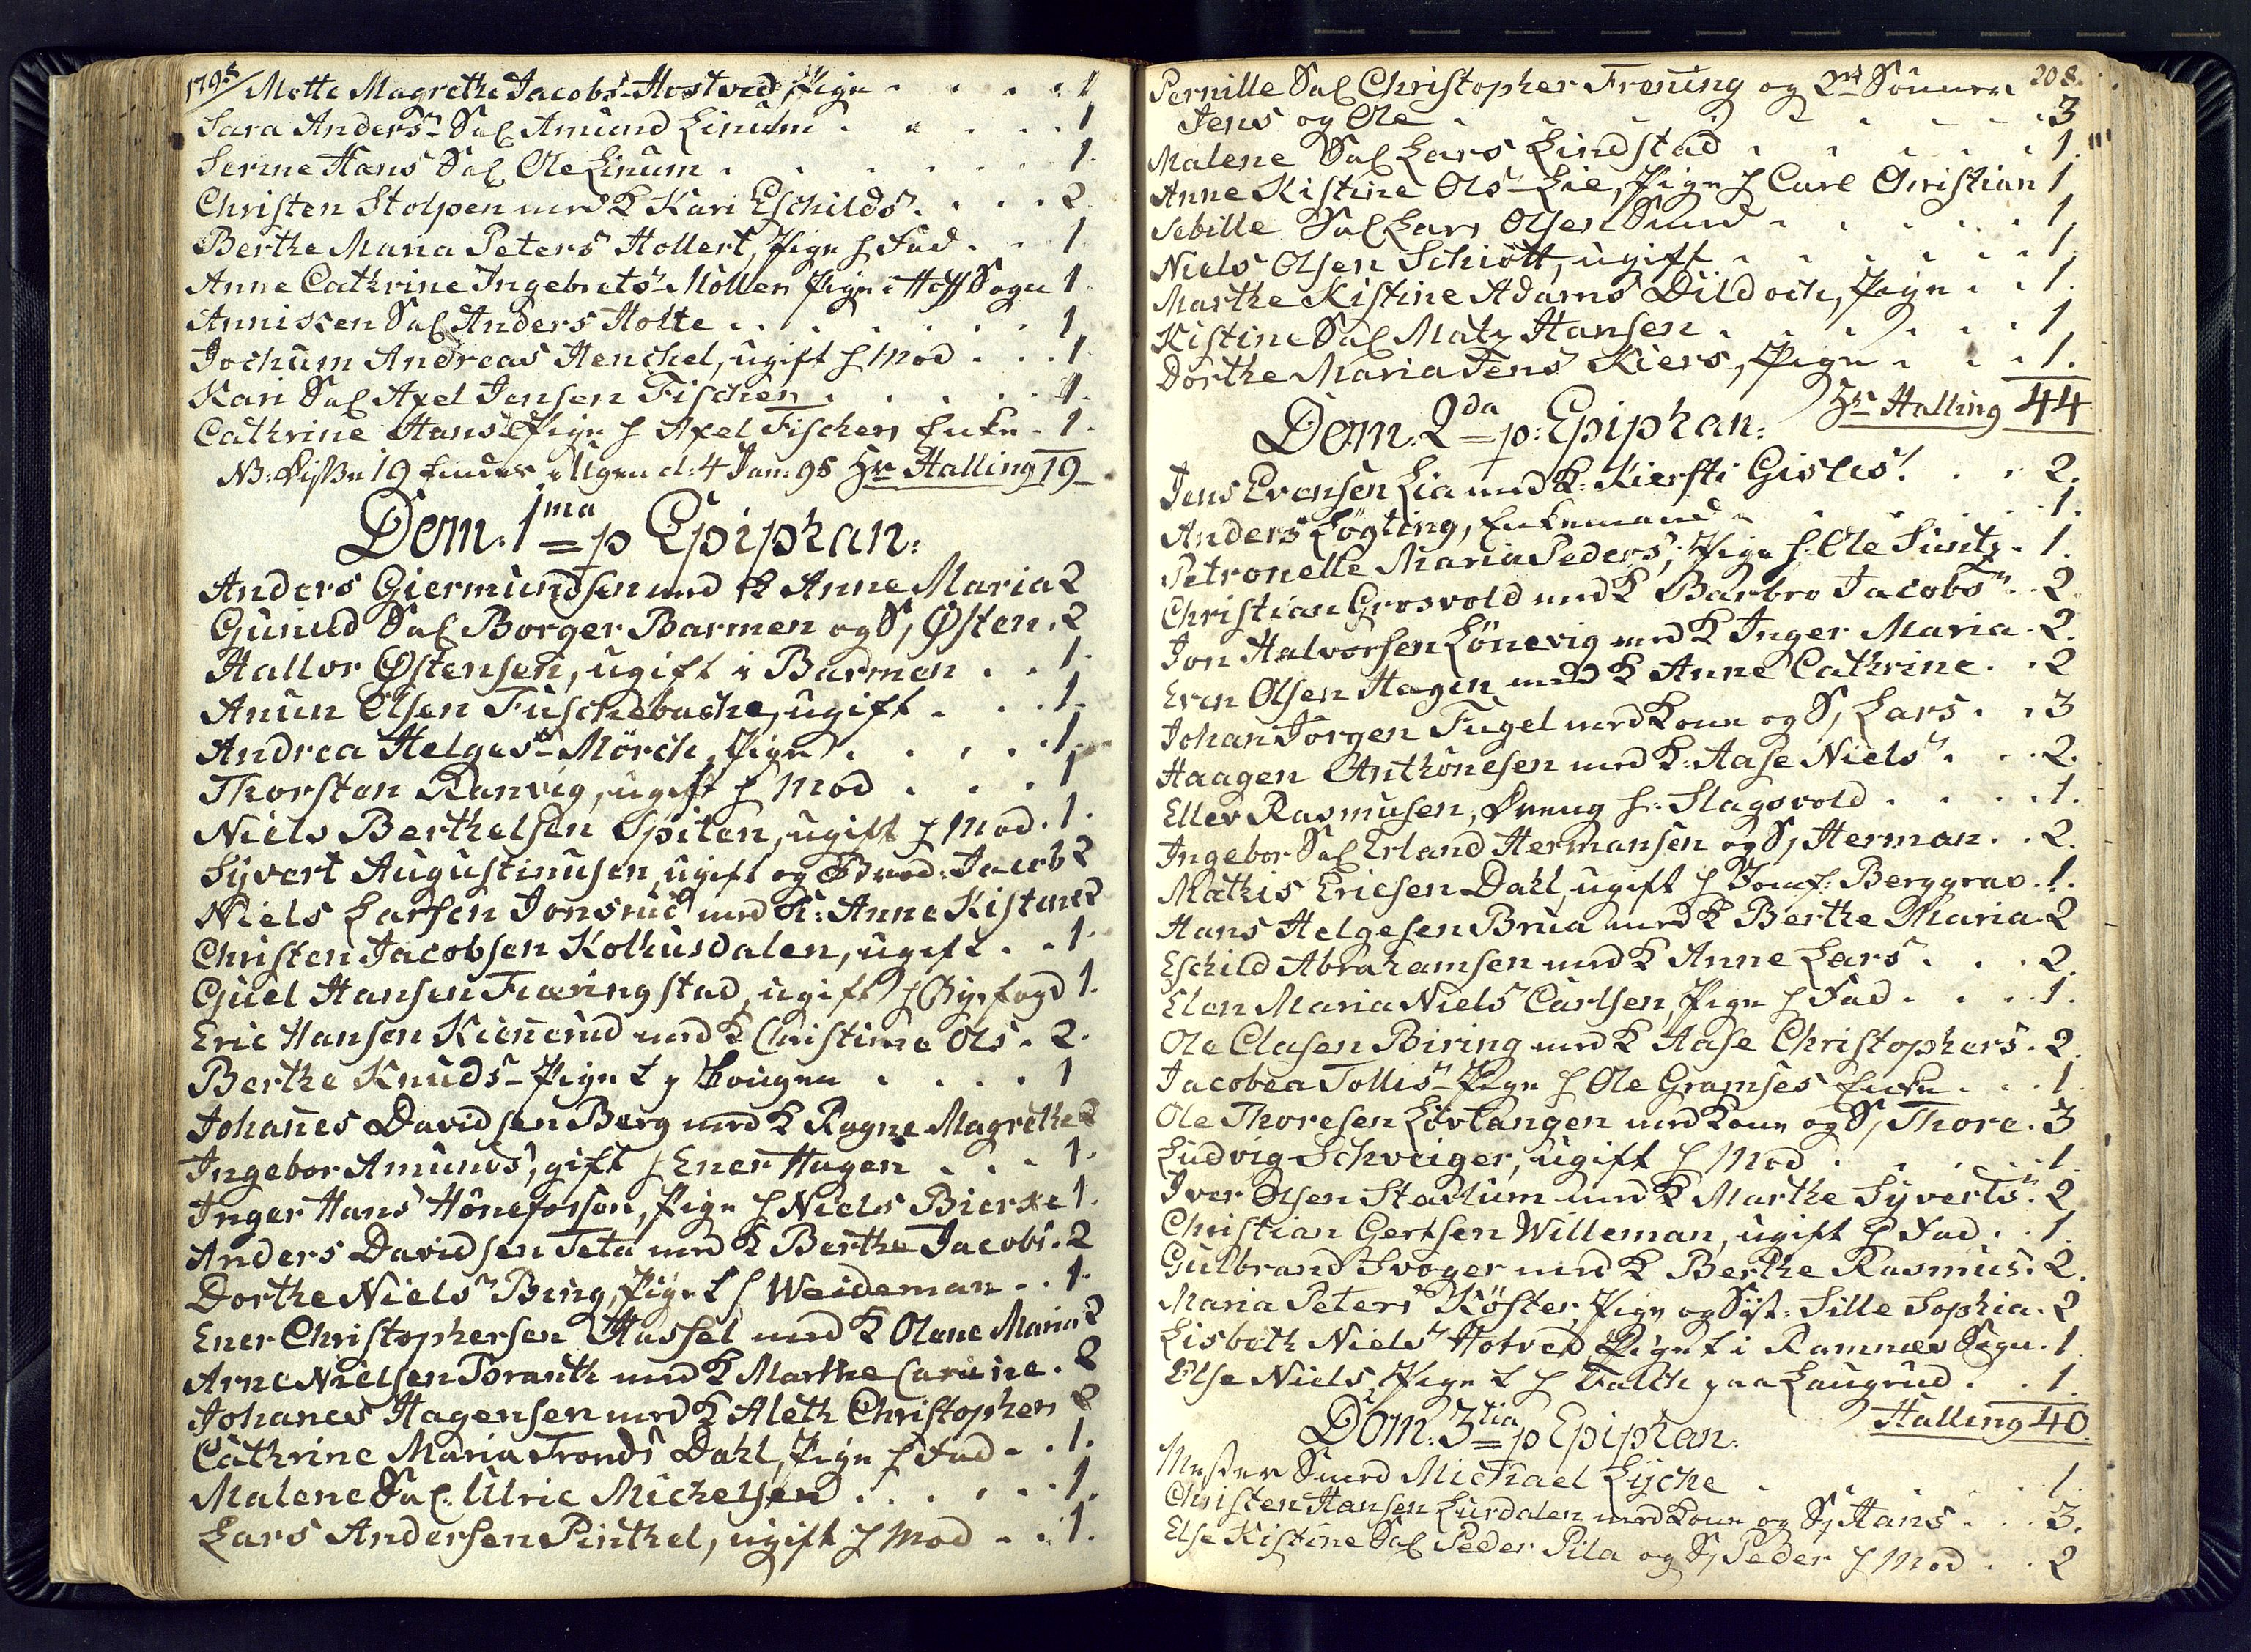 1795/ Mette Magrethe Jacobs- Hostved, Pige . . . . 1
Sara Anders- Sal Amund Linum . . . . . 1
Serine Hans Sal Ole Linum . . . . . . 1.
Christen Stolpen med K Kari Eschilds. . . . 2
Berthe Maria Peters Hollert, Pige h Fad . . 1
Anne Cathrine Ingebrets- Möller Pige i Hoff Sogn 1
Annissen Sal Anders Holte . . . . . . . 1
Jochum Andreas Henchel, ugift h Mod . . . 1
Kari Sal Axel Jensen Fischer . . . . . 1.
Cathrine Hans Pige h Axel Fischers Enke . 1.
NB: disse 19 findes i Ugen d: 4 Jan: 95 Hr Halling 19
Dom. 1ma p Epiphan:
Anders Giermundsen med K Anne Maria 2
Gunild Sal Borger Barmen og S, Østen . 2
Hallor Østensen, ugift i Barmen . . 1.
Anun Olsen Fuschebache, ugift . . . 1.
Andrea Helges- Mörch, Pige . . . . 1.
Thorsten Ranvig, ugift h Mod . . . 1
Niels Berthelsen Spiten, ugift h Mod . 1.
Syvert Augustinusen, ugift og Brod: Jacob 2
Niels Larsen Jonsrud med K: Anne Kistine 2
Christen Jacobsen Kolhusdalen, ugift . . 1.
Guel Hansen Fieringstad, ugift h Byefogd 1.
Eric Hansen Kiennerud med K Christine Ols . 2.
Berthe Knuds- Pige t p Hougen . . . . 1
Johanes Davidsen Berg med K Ragne Magrethe 2
Ingebor Amunds, gift h Ener Hagen . . . 1.
Inger Hans Hönefossen, Pige h Niels Bierke 1.
Anders Davidsen Teta med K Berthe Jacobs . 2
Dorthe Niels Bing, Pige t h Weideman . . 1.
Ener Christophersen Hassel med K Olene Maria 2
Arne Nielsen Toranth med K Marthe Carine . 2
Johanes Hagensen med K Aleth Christophers 2
Cathrine Maria Tronds Dahl, Pige h Fad . . 1.
Malene Sal. Ulric Michelsen . . . . . . 1.
Lars Andersen Pinthel, ugift h Mod . . 1.
208.
Pernille Sal Christopher Fröning og 2de Sönner
Jens og Ole . . . . . . . . 3
Malene Sal Lars Lindstad . . . . . 1.
Anne Kistine Ols- Lie, Pige h Carl Christian 1
Sebille Sal Lars Olsen Sund . . . . . 1.
Niels Olsen Schiött, ugift . . . . . 1.
Marthe Kistine Adams Dildoch, Pige . . 1.
Kistine Sal Matz Hansen . . . . . 1
Dorthe Maria Jens Kiers, Pige . . . . 1.
Hr Halling 44
Dom. 2da p: Epiphan:
Jens Evensen Lia med K: Kiersti Gisles! . . 2.
Anders Lögting, Enkemand . . . . . 1.
Petronelle Maria Peders, Pige h: Ole Suntz . 1.
Christian Grosvold med K Barbro Jacobs . . 2.
Jon Halvorsen Lönevig med K Inger Maria . 2.
Even Olsen Hagen med K Anne Cathrine . . 2
Johan Jörgen Fugel med Kone og S, Lars . . 3
Haagen Anthonesen med K: Aase Niels . . . 2.
Ellev Rasmusen, Dreng h: Slagsvold . . . . 1.
Ingebor Sal Erland Hermansen og S, Herman . . 2.
Mathis Ericsen Dahl, ugift h Jomf: Berggrav . 1.
Hans Helgesen Brua med K Berthe Maria . 2
Eschild Abrahamsen med K Anne Lars . . . 2
Elen Maria Niels Carlsen, Pige h Fad . . . 1.
Ole Clasen Biring med K Aase Christophers . 2.
Jacobea Tollis- Pige h Ole Gramses Enke . . . 1.
Ole Thoresen Lövlangen med Kone og S, Thore . 3
Ludvig Schveiger, ugift h Mod . . . . . 1.
Iver Olsen Stavlum med K Marthe Syverts . 2
Christian Gertsen Willeman, ugift h Fad . . 1.
Gulbrand Svoger med K Berthe Rasmus . 2.
Maria Peters Köster, Pige og Syst: Sille Sophia . 2
Lisbeth Niels Hotved, Pige t i Ramnes Sogn . 1.
Else Niels, Pige t h Falch paa Laugrud . . 1.
Halling 40.
Dom. 3tia p Epiphan:
Mester Smed Michael Lyche . . . . . . 1.
Christen Hansen Lurdalen med Kone og S, Hans . . . 3.
Else Kistine Sal Peder Pila og S, Peder h Mod . . 2